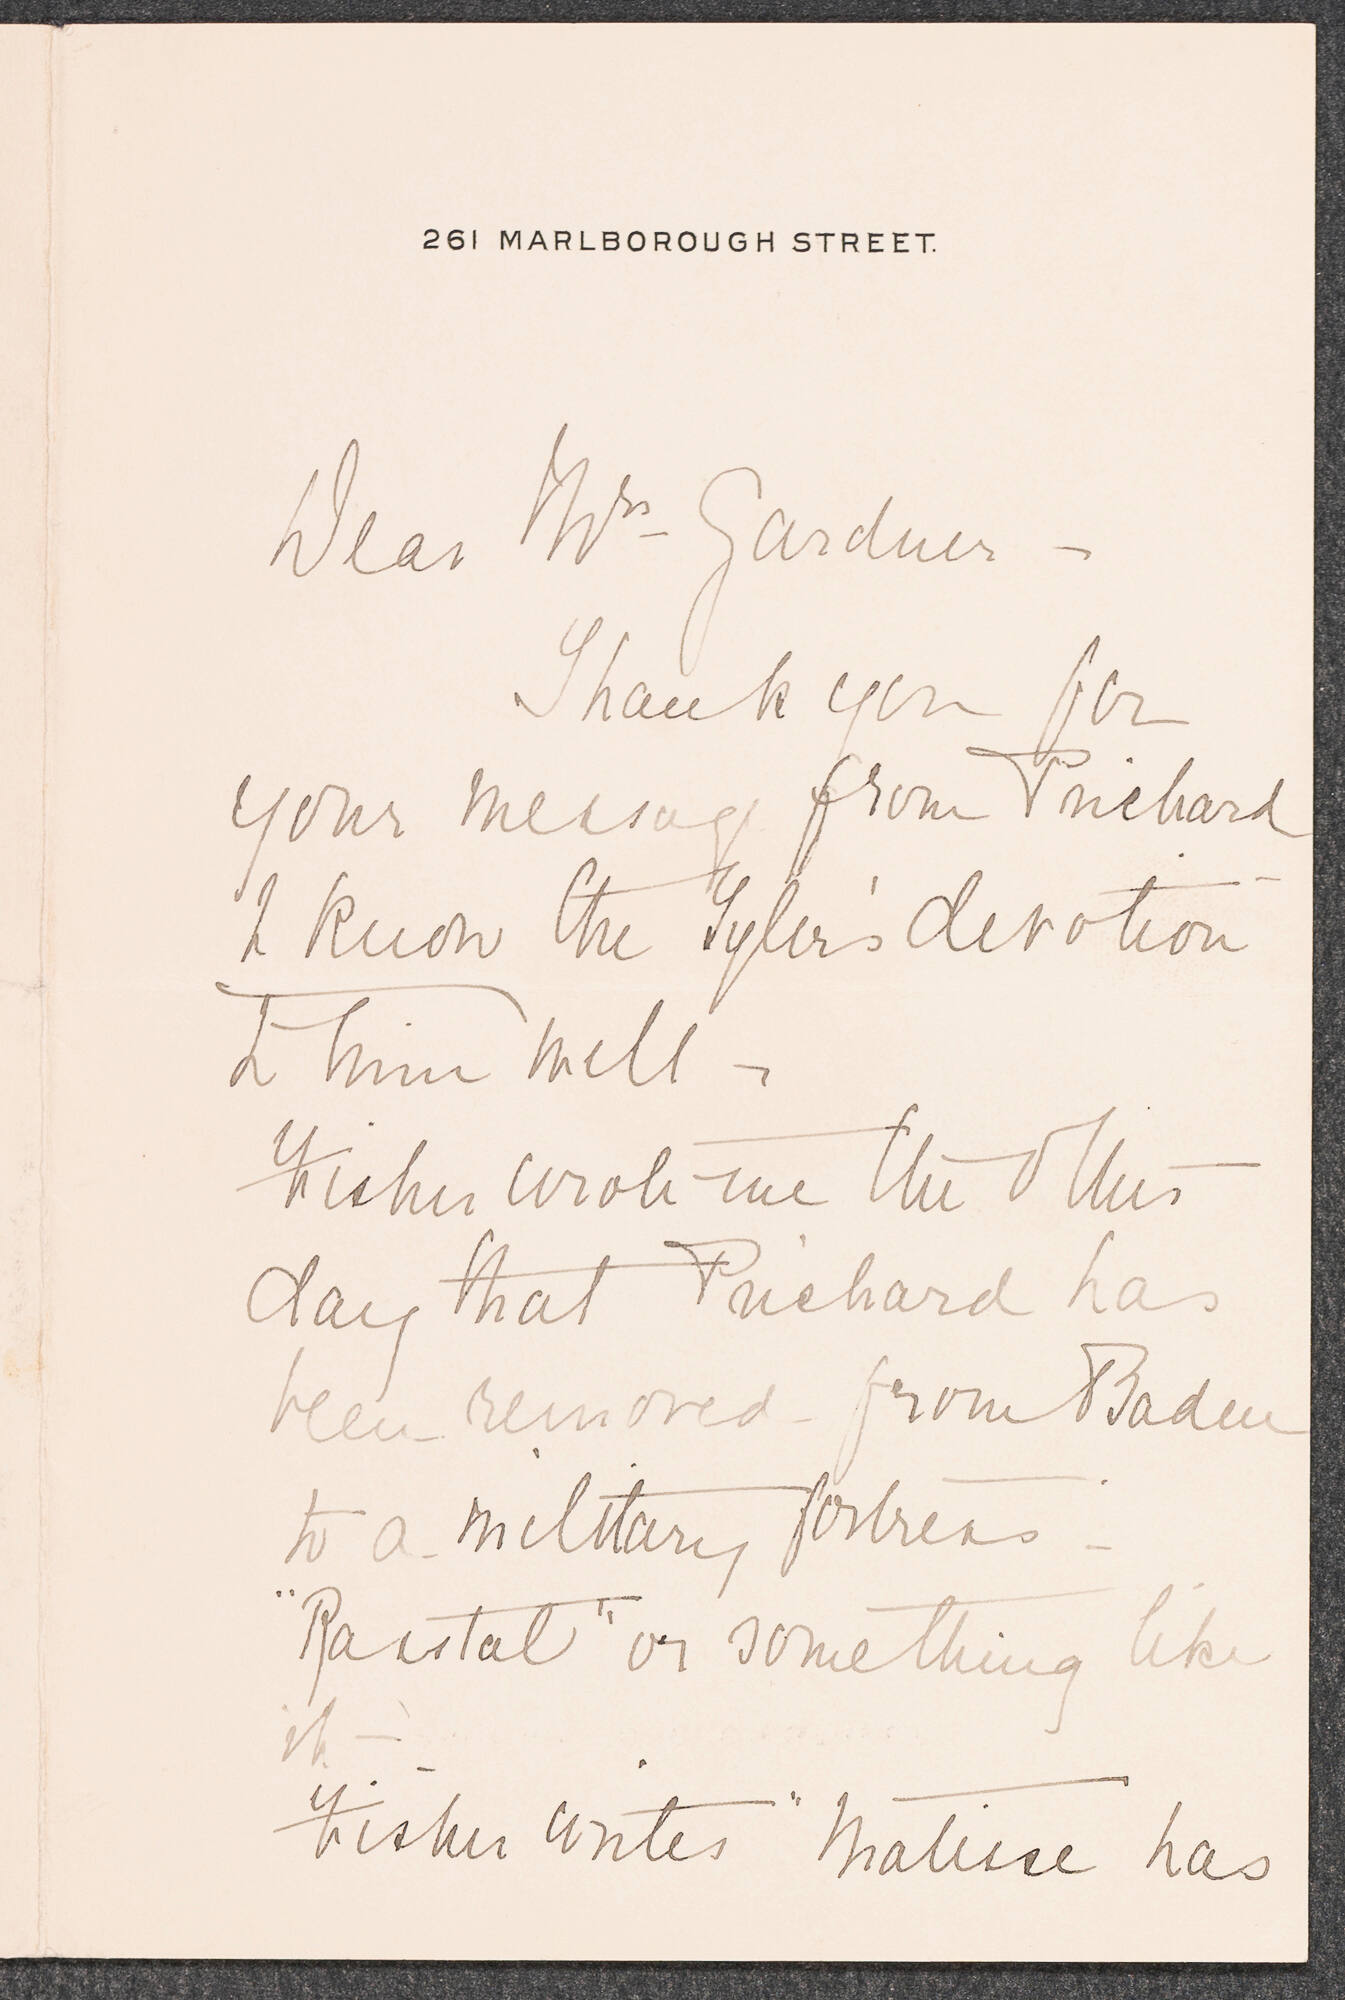 261 MARLBOROUGH STREET.
Dear Mrs Gardner –
Thank you for
your message from Prichard
I know the Tyler's devotion
to him well –
Fisher wrote me the other
day that Prichard has
been removed from Baden
to a military fortress –
"Rasstat" or something like
it –
Fisher writes "Matisse has